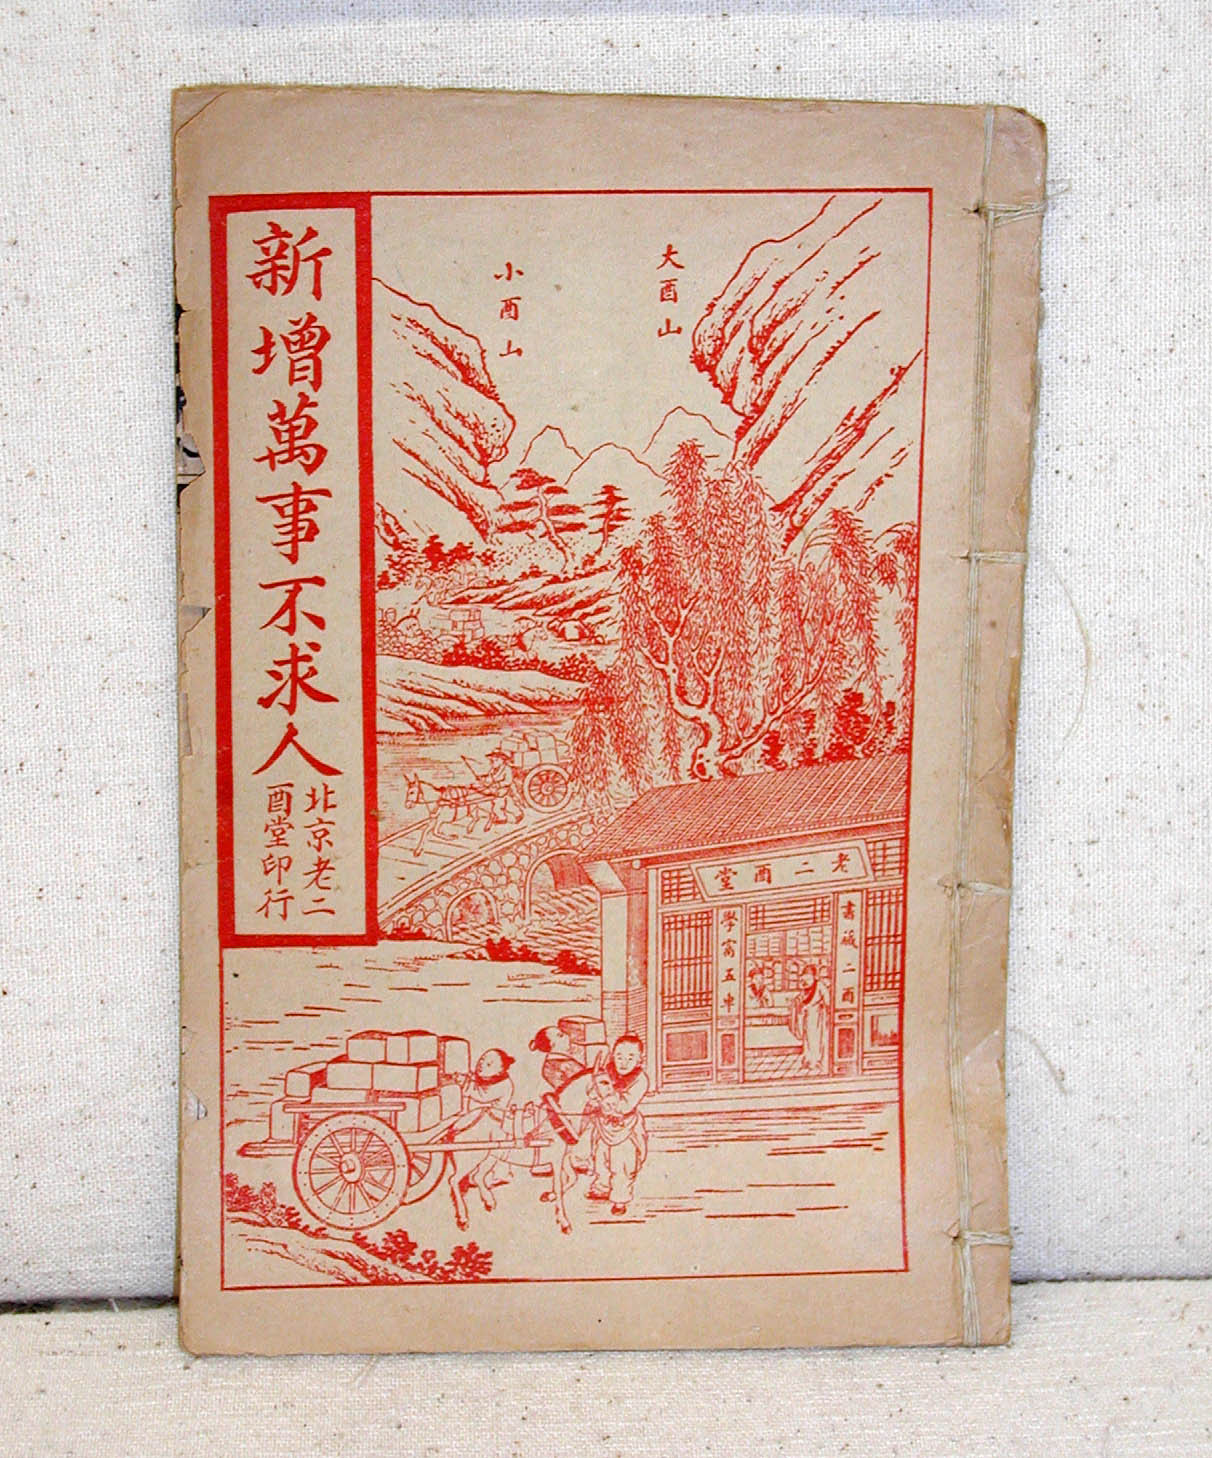 新增萬事不求人
北京老二
酉堂印行
大酉山
小酉山
老二酉堂
書藏二酉
學富五車